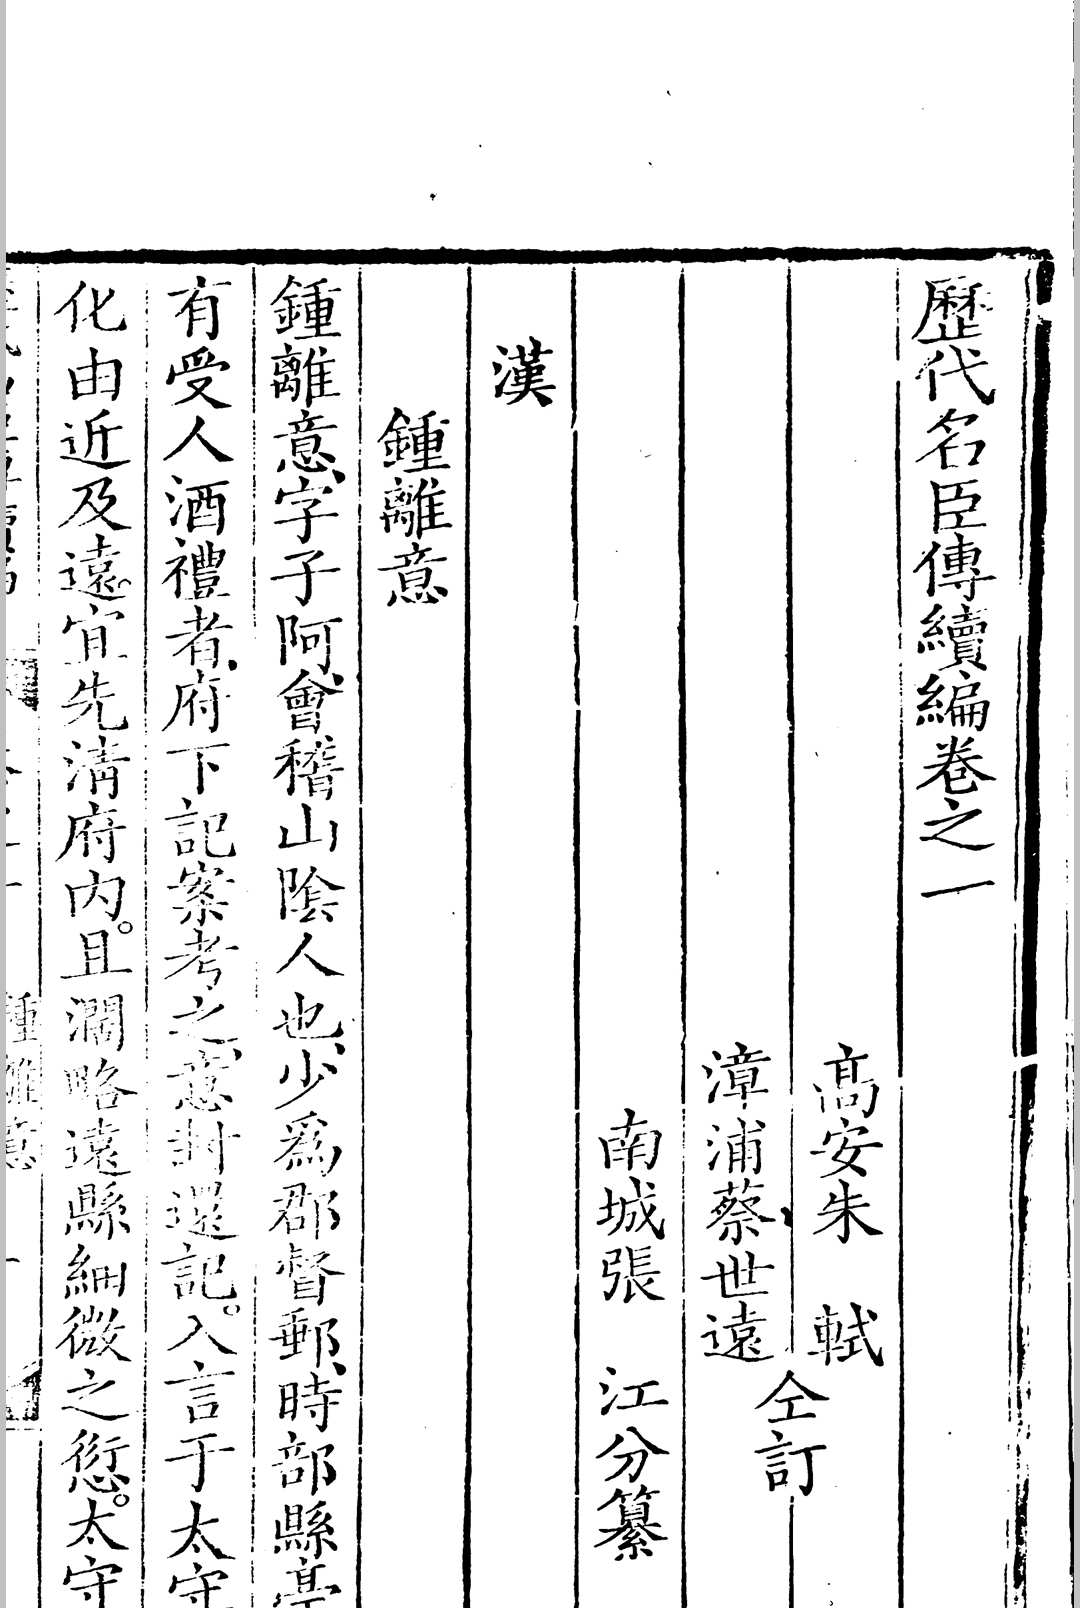 歷代名臣傳續編卷之一
高安朱　軾
漳浦蔡世遠
仝訂
南城張　江分纂
漢
鍾離意
鍾離意、字子阿、會稽山陰人也、少爲郡督郵、時部縣亭
有受人酒禮者、府下記案考之、意封還記。入言于太守
化由近及遠。宜先淸府內。且濶略遠縣細微之愆。太守
鍾離意